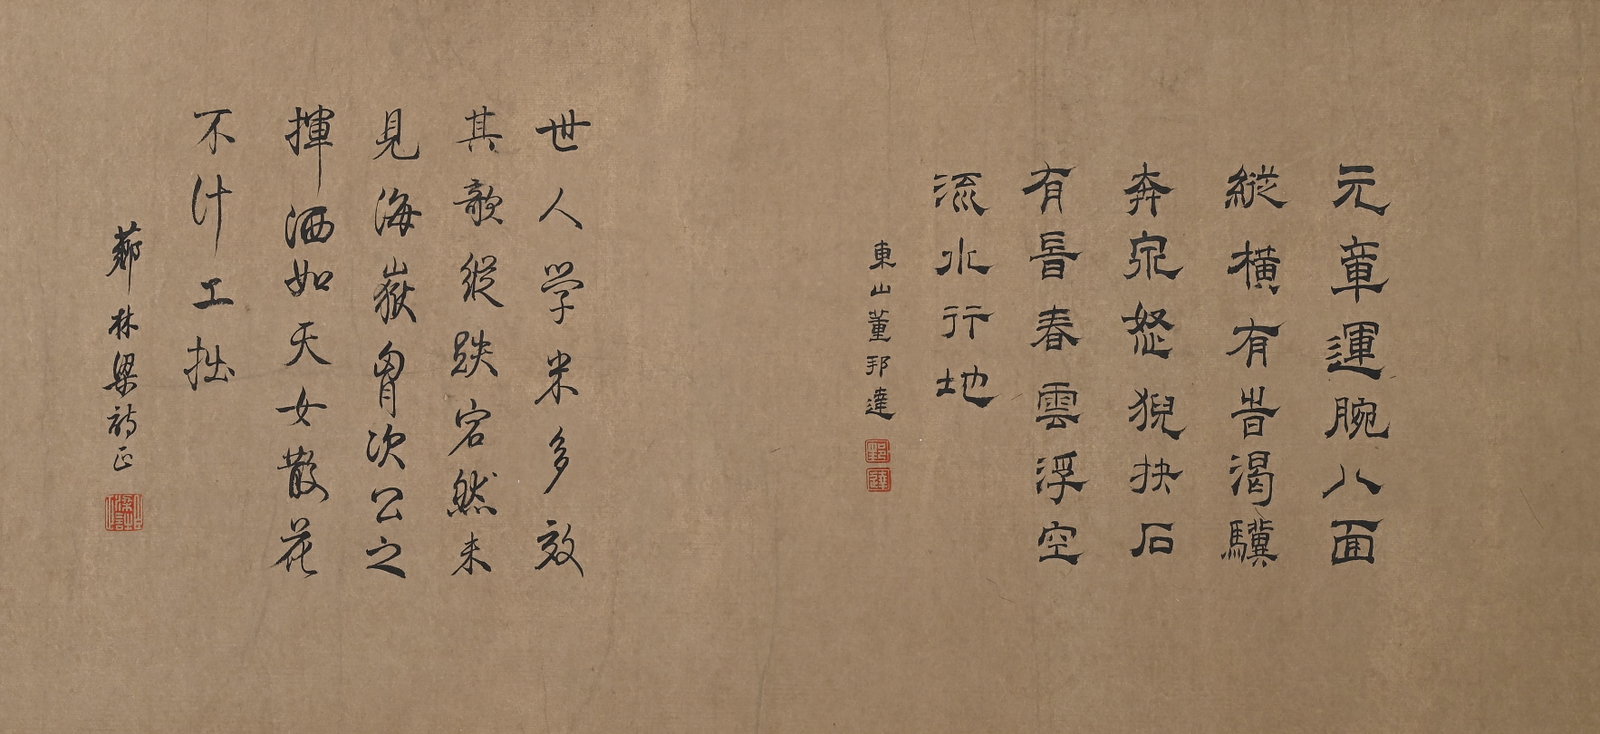 元章運腕八面
縱橫有旹渴驥
奔泉怒猊抉石
有旹春雲浮空
流水行地
東山董邦達
世人学米多效
其欹縱跌宕然未
見海嶽胷次公之
揮洒如天女散花
不計工拙
薌林梁詩正